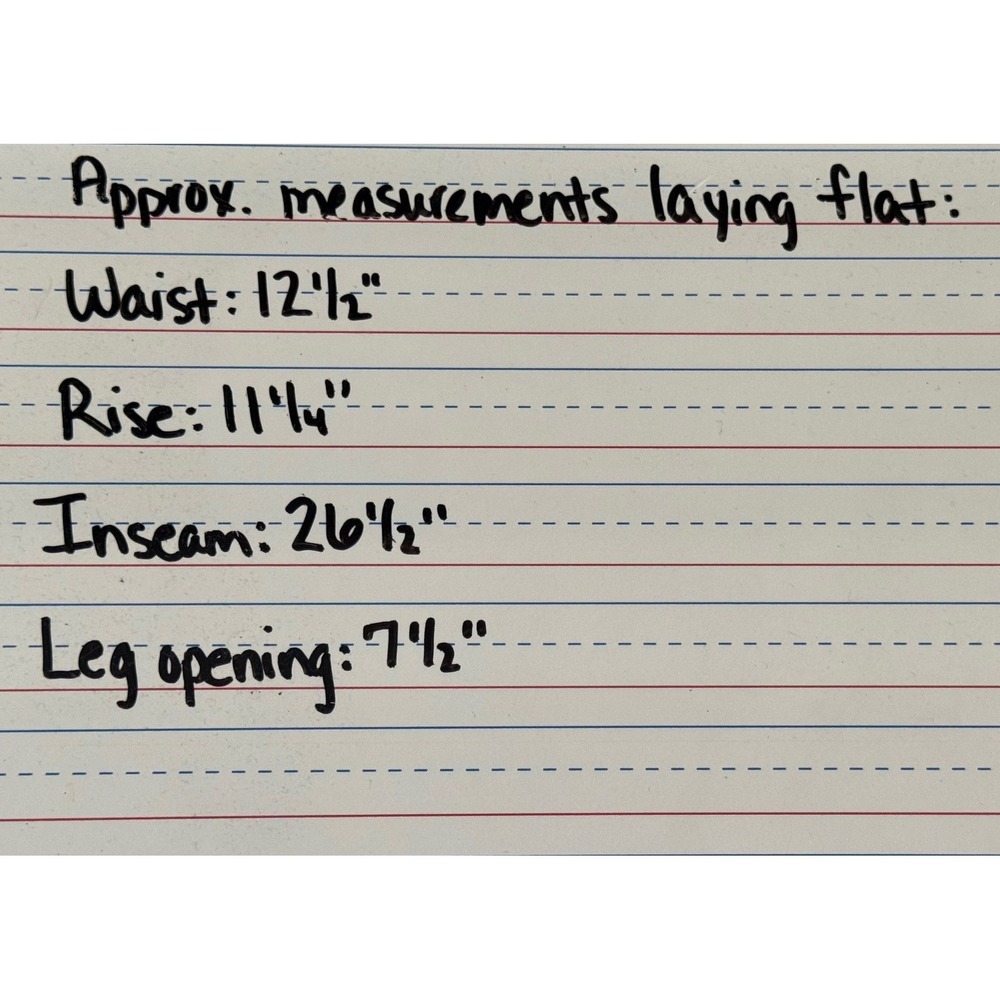 Approx. measurements laying flat:
Waist: 12 1/2"
Rise: 11 1/4"
Inseam: 26 1/2"
Leg opening: 7 1/2"